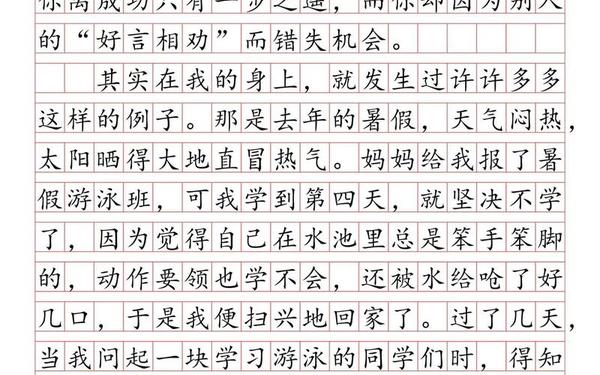 你离成功只有一步之遥，而你却因为别人
的“好言相劝”而错失机会。
其实在我的身上，就发生过许许多多
这样的例子。那是去年的暑假，天气闷热，
太阳晒得大地直冒热气。妈妈给我报了暑
假游泳班，可我学到第四天，就坚决不学
了，因为觉得自己在水池里总是笨手笨脚
的，动作要领也学不会，还被水给呛了好
几口，于是我便扫兴地回家了。过了几天，
当我问起一块学习游泳的同学们时，得知